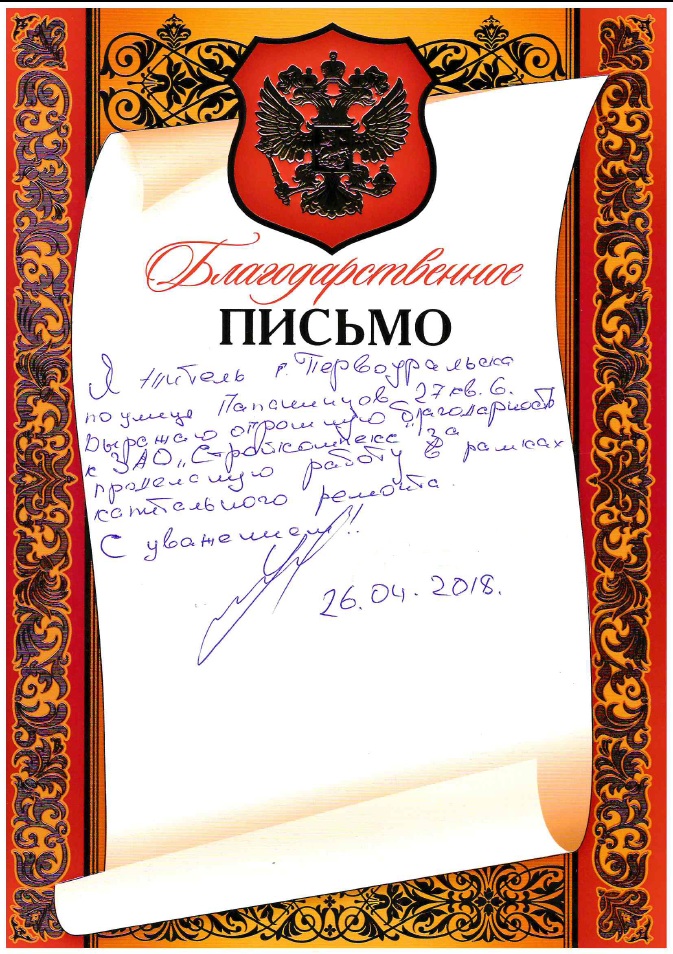 Благодарственное
ПИСЬМО
Я житель г. Первоуральска
по улице Папанинцов 27 кв. 6.
Выражаю огромную благодарность
к ЗАО „Стройкомплекс" за
проделаную работу в рамках
капитального ремонта.
С уважением!
26.04.2018.